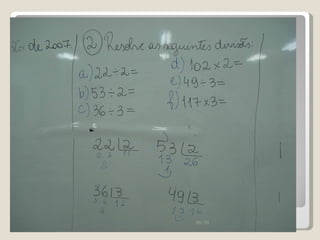 de 2007.
② Resolve as seguintes divisões:
a) 22÷2=
b) 53÷2=
c) 36÷3=
d) 102×2=
e) 49÷3=
f) 117×3=
22 |2
11
53 |2
13 26
1
36 |3
0 6 12
49 |3
19 16